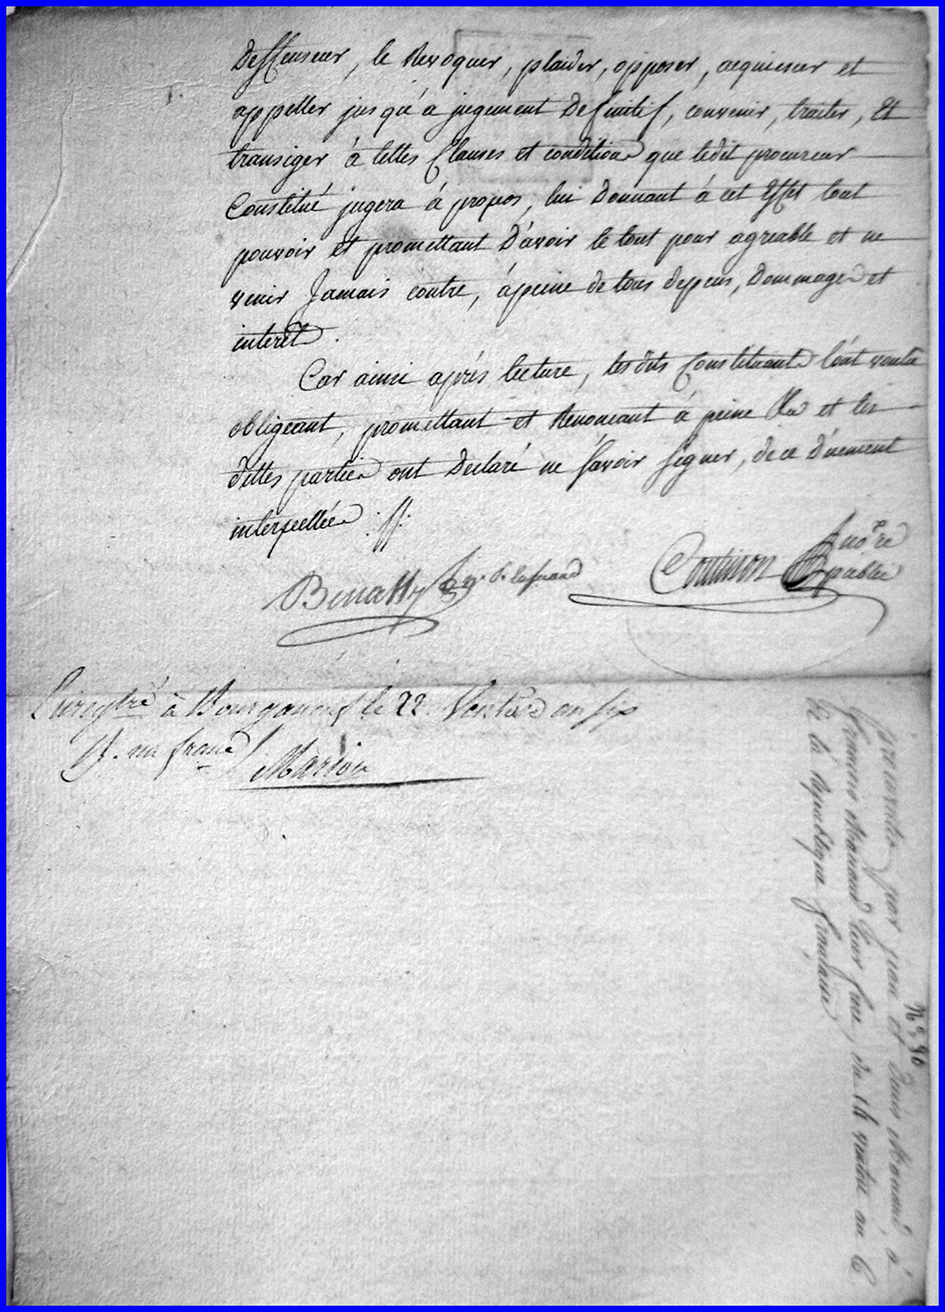 Deffenseur, le Revoquer, plaider, opposer, acquiescer et
appeller jusqu'à jugement Definitif, convenir, traiter, Et
transiger à telles Clauses et conditions que ledit procureur
Constitué jugera à propos, lui Donnant à cet Effet tout
pouvoir et promettant D'avoir le tout pour agreable et ne
venir Jamais contre, à peine de tous depens, Dommages et
interêts.
Car ainsi après lecture, lesdits Constituants l'ont voulu
obligeant, promettant et Renoncant à peine et les
dittes parties ont Declaré ne Savoir Signer, de ce Düement
interpellées
Coutisson no.re public
Enregtré à Bourganeuf le 22 Ventôse an six
R. un franc
Marion
N.° 90
par jean et Mamand à
francois Mamand leur frere, du 14 ventôse an 6
de la republique francaise